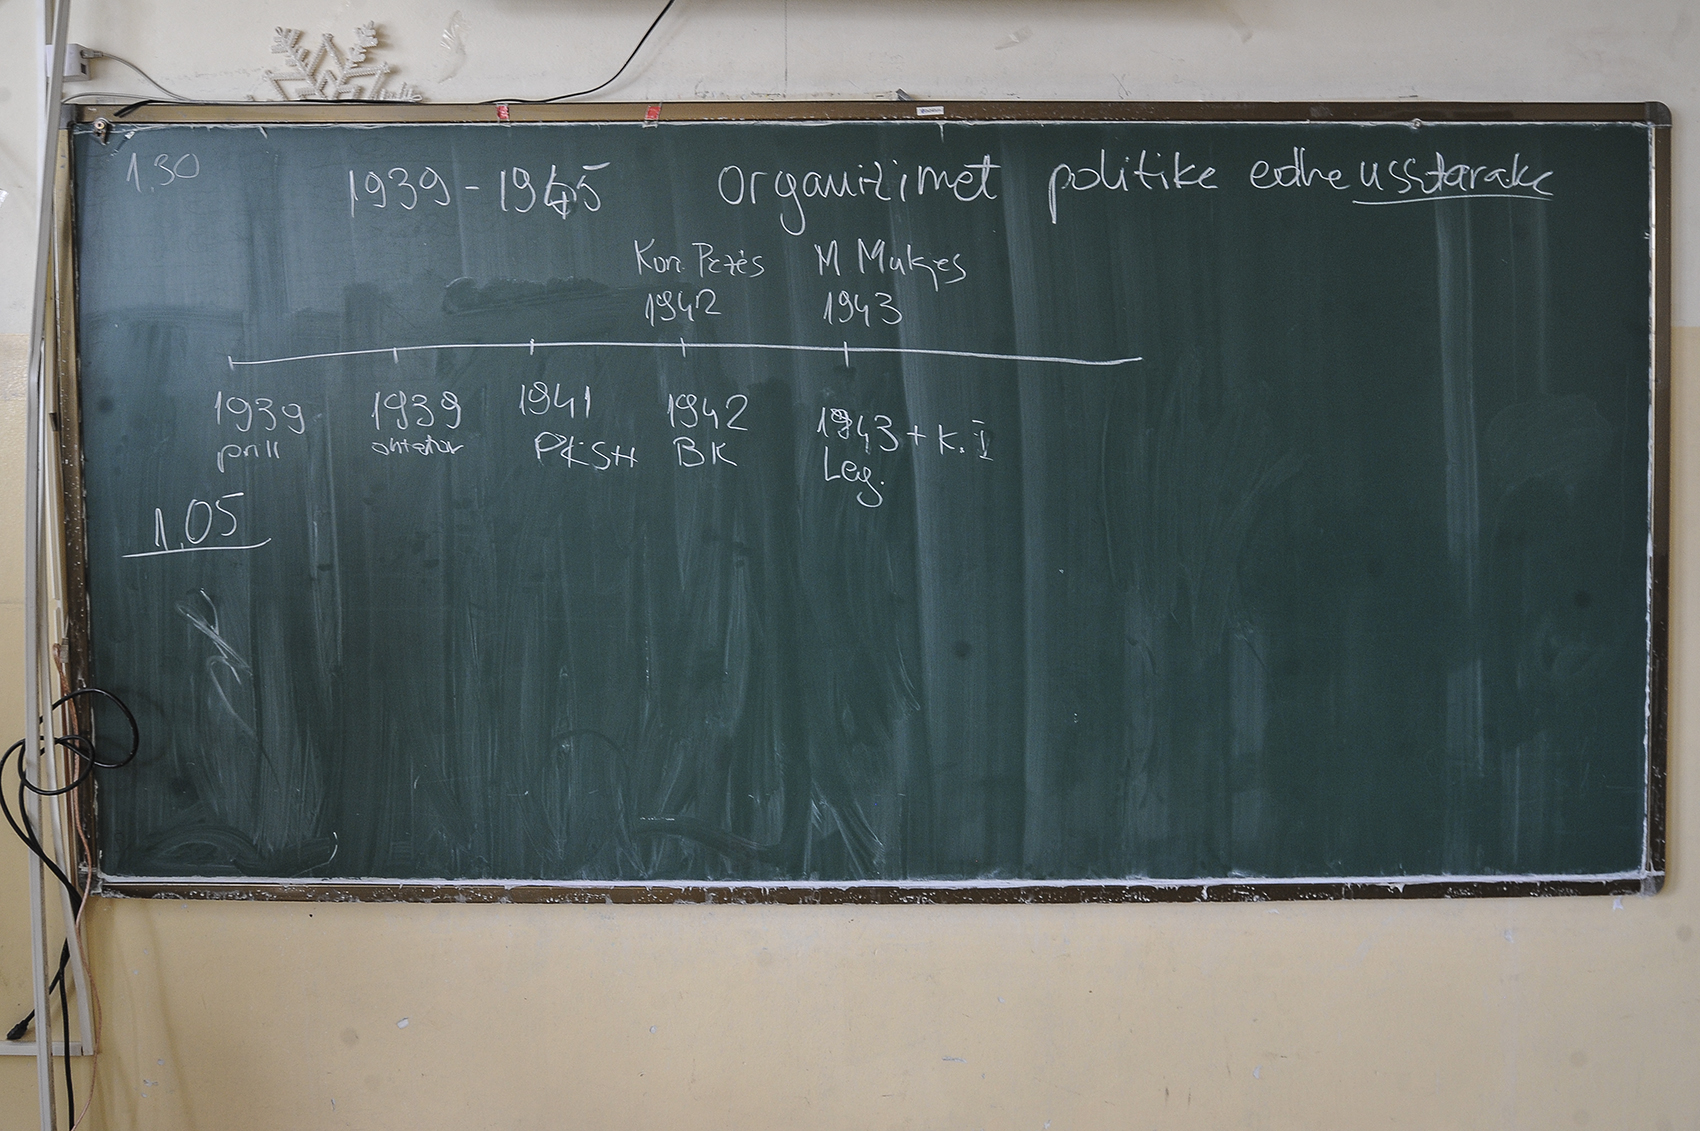 1.30
1939 - 1945 organizimet politike edhe usstarake
Kon. Pezës M Mukjes
1942 1943
1939 1939 1941 1942 1943 + K. I
prill PKSH BK Leg.
1.05